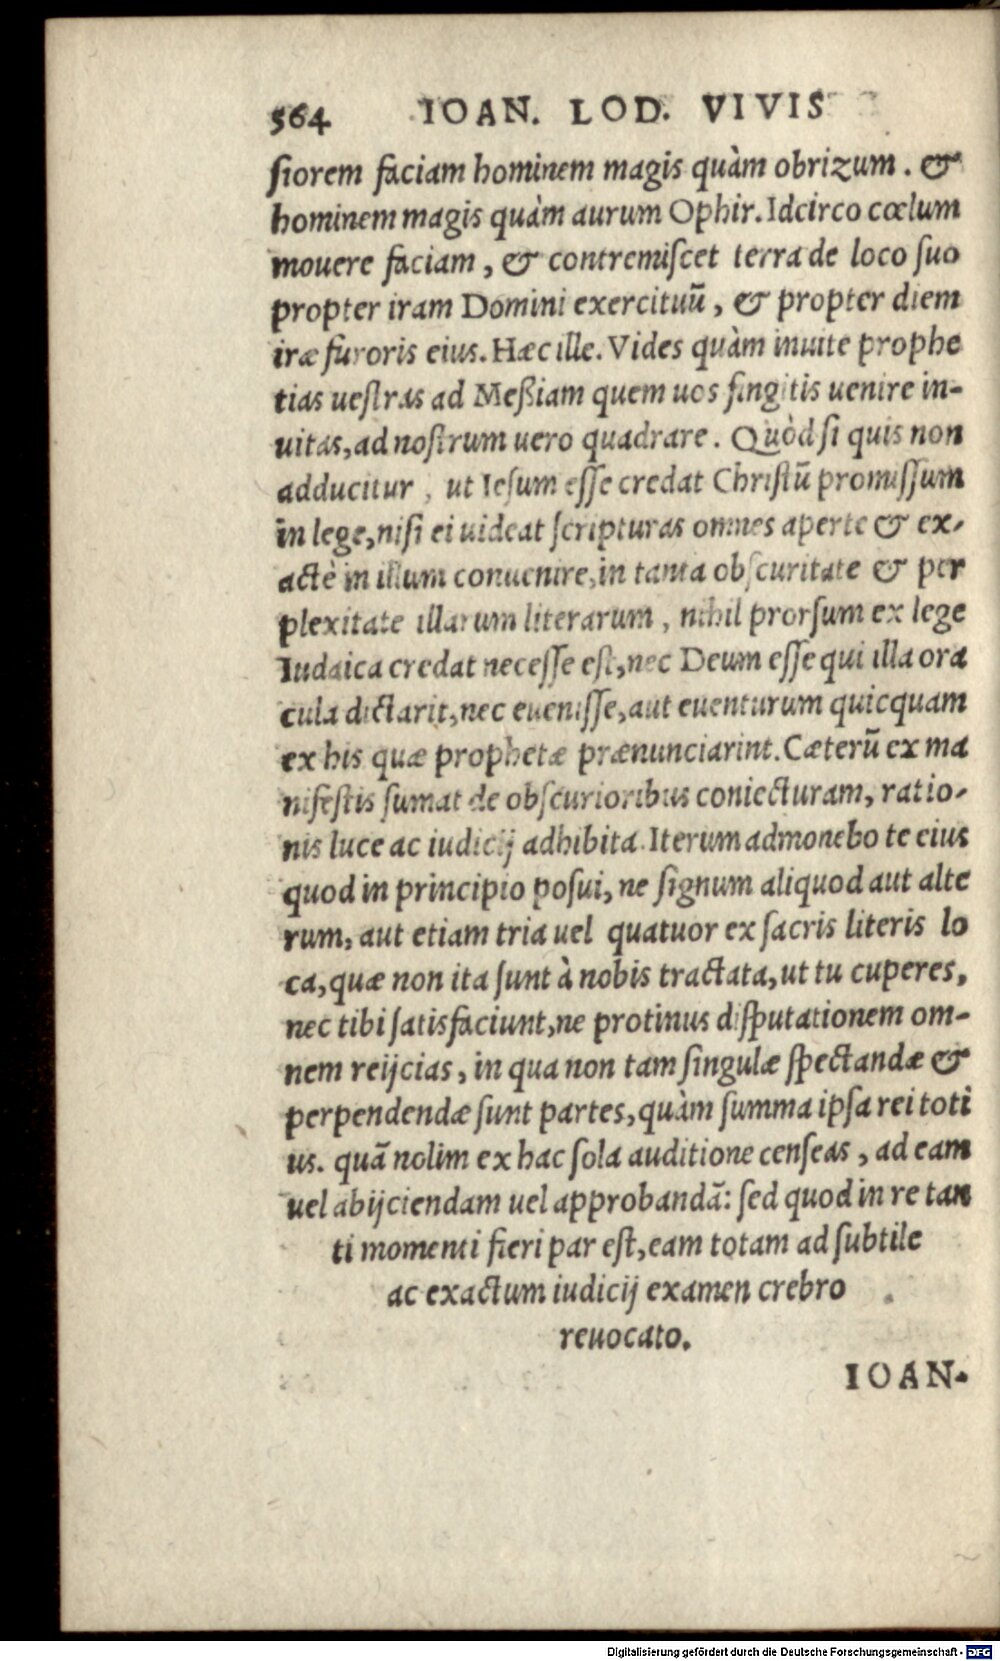 564 IOAN. LOD. VIVIS
siorem faciam hominem magis quàm obrizum. &
hominem magis quàm aurum Ophir. Idcirco cœlum
mouere faciam, & contremiscet terra de loco suo
propter iram Domini exercituū, & propter diem
iræ furoris eius. Hæc ille. Vides quàm inuite prophe
tias uestras ad Meßiam quem uos fingitis uenire in-
uitas, ad nostrum uero quadrare. Quòd si quis non
adducitur, ut Iesum esse credat Christū promissum
in lege, nisi ei uideat scripturas omnes aperte & ex-
actè in illum conuenire, in tanta obscuritate & per
plexitate illarum literarum, nihil prorsum ex lege
Iudaica credat necesse est, nec Deum esse qui illa ora
cula dictarit, nec euenisse, aut euenturum quicquam
ex his quæ prophetæ prænunciarint. Cæterū ex ma
nifestis sumat de obscurioribus coniecturam, ratio-
nis luce ac iudicij adhibita. Iterum admonebo te eius
quod in principio posui, ne signum aliquod aut alte
rum, aut etiam tria uel quatuor ex sacris literis lo
ca, quæ non ita sunt à nobis tractata, ut tu cuperes,
nec tibi satisfaciunt, ne protinus disputationem om-
nem reijcias, in qua non tam singulæ spectandæ &
perpendendæ sunt partes, quàm summa ipsa rei toti
us. quā nolim ex hac sola auditione censeas, ad eam
uel abijciendam uel approbandā: sed quod in re tan
ti momenti fieri par est, eam totam ad subtile
ac exactum iudicij examen crebro
reuocato.
IOAN-
Digitalisierung gefördert durch die Deutsche Forschungsgemeinschaft - DFG